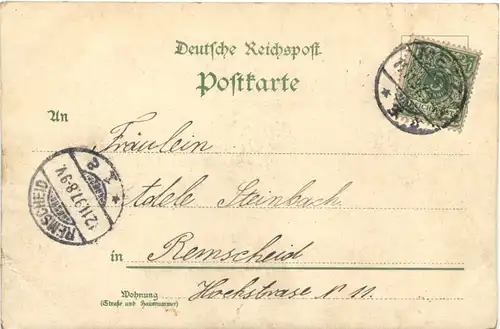 Deutsche Reichspost
Postkarte
An
Fräulein
Adele Steinbach
in Remscheid
Wohnung
(Straße und Hausnummer)
Hochstrasse N 11.
REMSCHEID
12.11.97.8-9V.